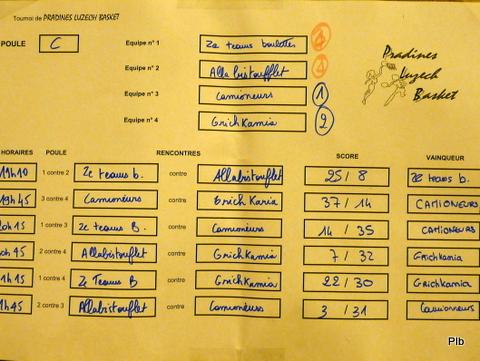 Tournoi de PRADINES LUZECH BASKET
POULE C
Equipe n° 1 Ze teams boulettes
Equipe n° 2 Allabistoufflet
Equipe n° 3 Camioneurs 1
Equipe n° 4 Grichkamia 2
Pradines
Luzech
Basket
HORAIRES POULE RENCONTRES SCORE VAINQUEUR
19h10 1 contre 2 Ze teams b. contre Allabistoufflet 25 / 8 Ze teams b.
19h45 3 contre 4 Camioneurs contre Grich Kamia 37 / 14 CAMIONEURS
20h15 1 contre 3 Ze teams B. contre Camioneurs 14 / 35 CAMIONEURS
20h45 2 contre 4 Allabistouflet contre Grichkamia 7 / 32 Grichkamia
1h15 1 contre 4 Ze Teams B contre Grichkamia 22 / 30 Grichkamia
1h45 2 contre 3 Allabistouflet contre Camioneurs 3 / 31 Camionneurs
Plb